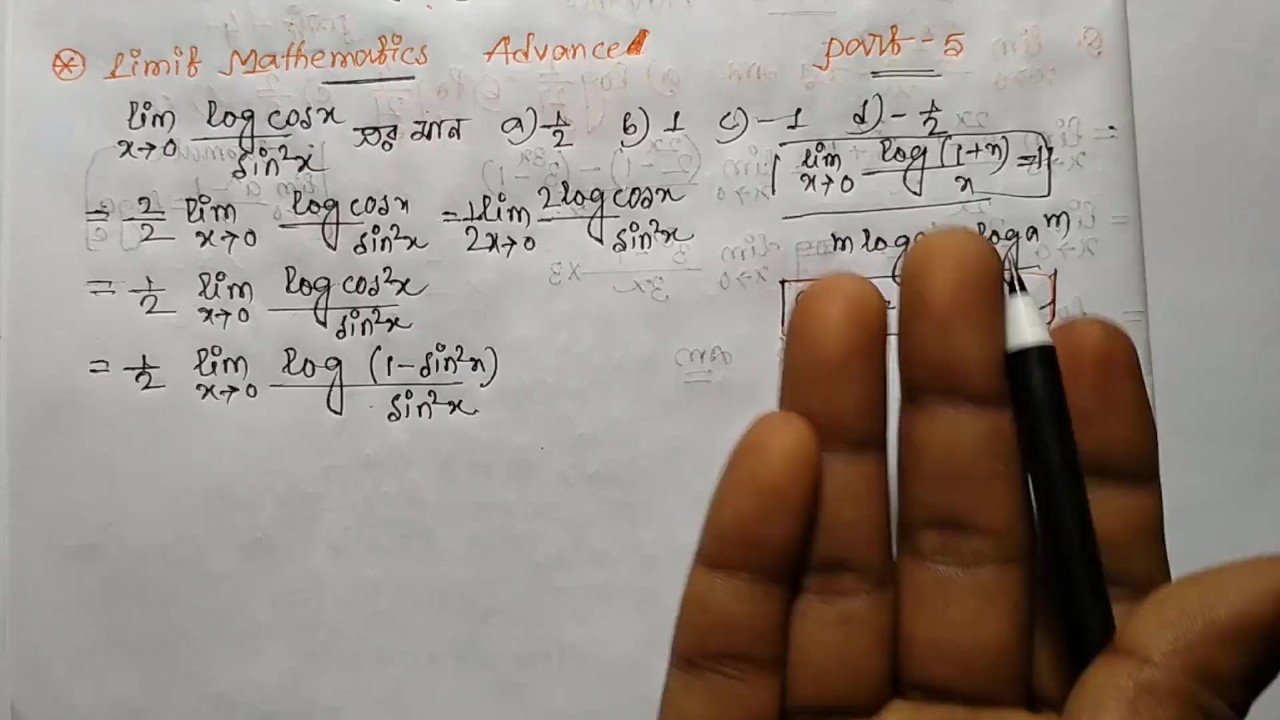 ⊛ Limit Mathematics Advance part - 5
lim x→0 log cosx / sin²x এর মান a) 1/2 b) 1 c) -1 d) - 1/2
lim x→0 log (1+x) / x = 1
= 2/2 lim x→0 log cosx / sin²x = 1/2 lim x→0 2 log cosx / sin²x
m log log a^m
= 1/2 lim x→0 log cos²x / sin²x
= 1/2 lim x→0 log (1 - sin²x) / sin²x